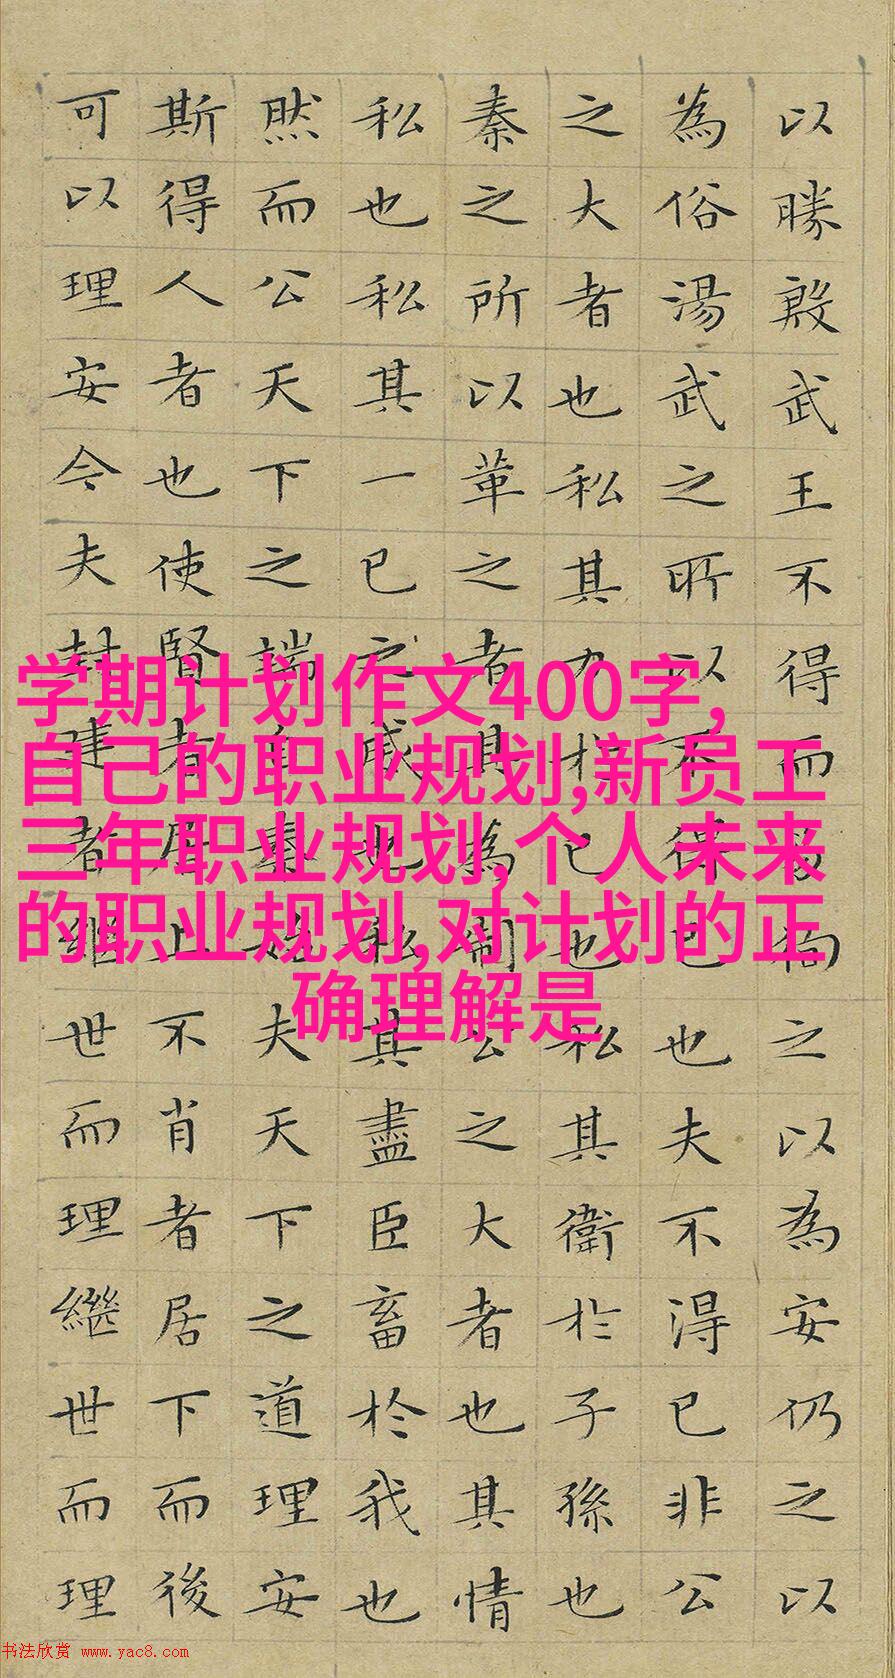 以勝殷武王不得而易徇之以為安仍之以
為俗湯武之所以不得已也夫不得已非公
之大者也私其力於己也私其衛於子孫也
秦之所以革之者其為制公之大者也其情
私也私其一己之威也私其盡臣畜於我也
然而公天下之端自秦始夫天下之道理安
斯得人者也使賢者居上不肖者居下而後
可以理安今夫封建者繼世而理繼世而理
学期计划作文400字,
自己的职业规划,新员工
三年职业规划,个人未来
的职业规划,对计划的正
确理解是
书法欣赏 www.yac8.com